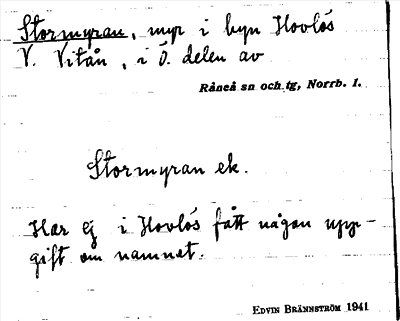 Stormyran, myr i byn Hovlös
V. Vitån, i Ö. delen av
Råneå sn och tg, Norrb. l.
Stormyran ek.
Har ej i Hovlös fått någon upp-
gift om namnet.
EDVIN BRÄNNSTRÖM 1941